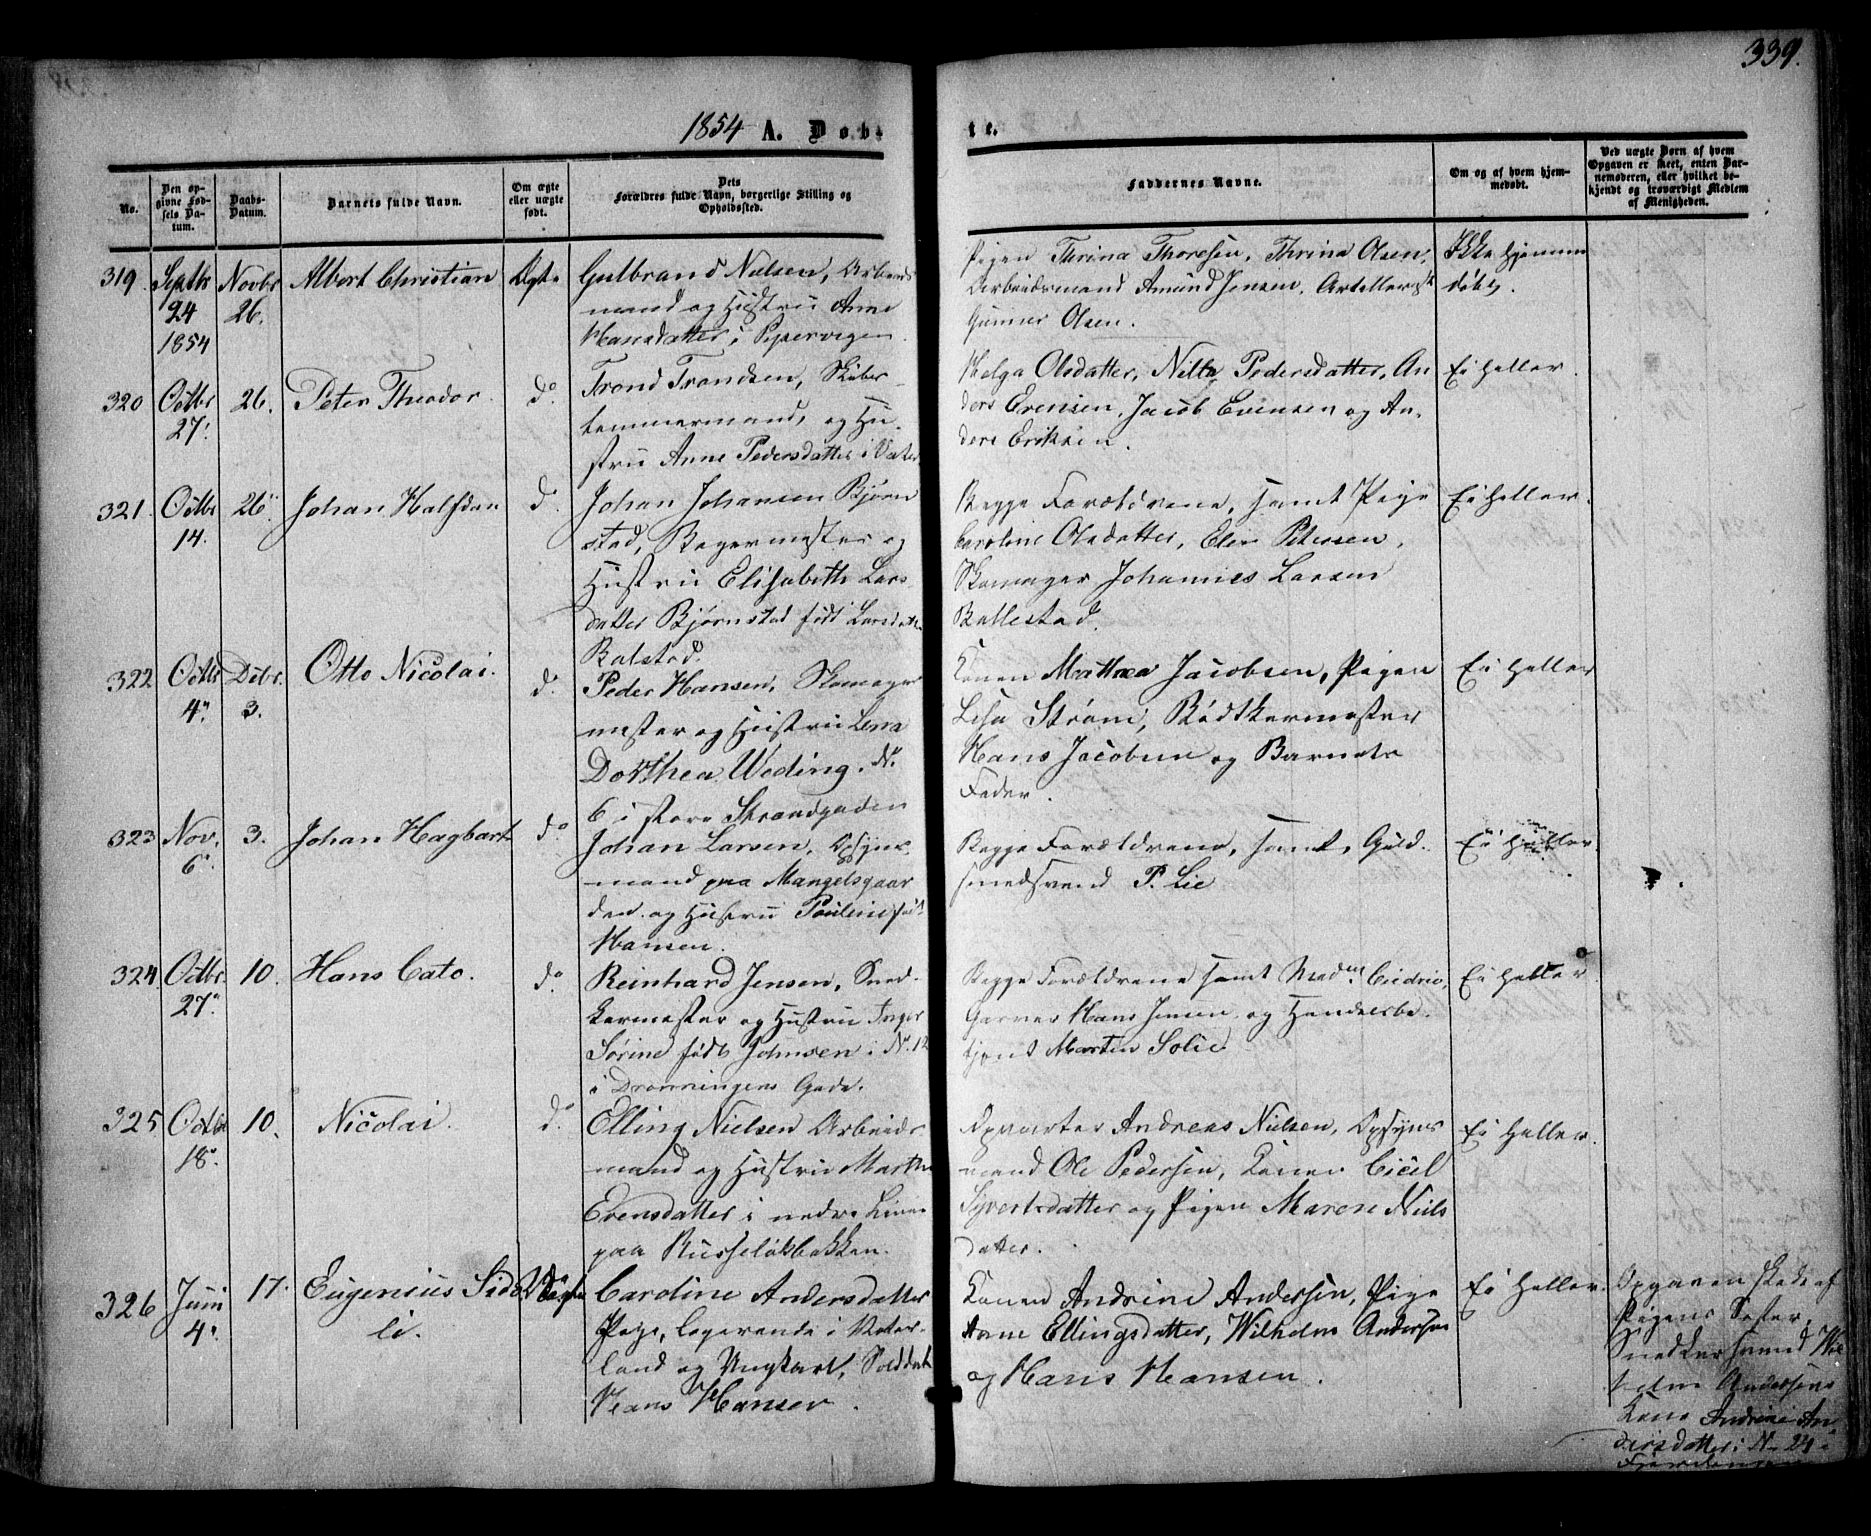 339.
1854 A. Døb-
te.
No.
Den op-
givne Fød-
sels Da-
tum.
Daabs-
Datum.
Barnets fulde Navn.
Om ægte
eller uægte
født.
Dets
Forældres fulde Navn, borgerlige Stilling og
Opholdssted.
Faddernes Navne.
Om og af hvem hjem-
medøbt.
Ved uægte Børn af hvem
Opgaven er skeet, enten Bar-
nemoderen, eller hvilket be-
kjendt og troværdigt Medlem
af Menigheden.
319. Septbr 24 1854 Novbr 26. Albert Christian Ægte
Gulbrand Nielsen, Arbeids
mand og Hustru Anne
Hansdatter i Pipervigen
Pigen Thrina Thoresen, Thrina Olsen,
Arbeidsmand Amund Jensen, Artellerist
Gunner Olsen.
Ikke hjemme
døbt.
320 Octbr 27. 26. Peter Theodor. do.
Trond Trondsen, Skibs-
tømmermand, og Hu-
stru Anne Pedersdatter i Vater
Helga Olsdatter, Nille Pedersdatter, An
ders Evensen, Jacob Evensen og An-
ders Eriksen.
Ei heller.
321. Octbr 14. 26. Johan Halfdan do.
Johan Johansen Bjørn
stad, Bagermester og
Hustru Elisabeth Lars-
datter Bjørnstad født Larsdatter
Balstad.
Begge Forældrene, samt Pige
Caroline Olsdatter, Elen Petersen,
Skomager Johannes Larsen
Ballestad.
Ei heller.
322 Octbr 4. Debr. 3. Otto Nicolai. do.
Peder Hansen, Skomager
mester og Hustru Lena
Dorthea Weding. N.
6 i store Strandgaden
Konen Mathea Jacobsen, Pigen
Lisa Strøm, Bødtkermester
Hans Jacobsen og Barnets
Fader.
Ei heller
323 Nov. 6. 3. Johan Hagbart do
Johan Larsen, Opsyns
mand paa Mangelsgaar
den og Hustru Pauline født
Hansen.
Begge Forældrene, samt, Guld-
smedsvend P. Lie
Ei heller.
324. Octbr. 27. 10. Hans Cato. do.
Reinhard Jensen, Sned-
kermester og Hustru Inger
Sørine født Johnsen i No. 12
i Dronningens Gade.
Begge Forældrene samt Madm
Garver Hans Jensen og Handelsbe-
tjent Martin Solie
Ei heller
325 Octbr 18. 10. Nicolai. do.
Elling Nielsen Arbeids
mand og Hustru Marthe
Evensdatter i nedre Linie
paa Ruseløkbakken.
Opvarter Andreas Nielsen, Opsyns
mand Ole Pedersen, Konen Cicil
Syvertsdatter og Pigen Maren Niels
datter.
Ei heller.
326 Juni 4. 17. Eugenius Sido
li. Uægte
Caroline Andersdatter
Pige, logerende i Vater-
land og Ungkarl, Soldat
Hans Hansen.
Konen Andrine Andersen, Pige
Anne Ellingsdatter, Wilhelm Andersen
og Hans Hansen.
Ei heller.
Opgaven skede af
Pigens Søster,
Snedkersvend Wil
helm Andersens
Kone Andrine An
dersdatter i N 24 i
Fjerdingen